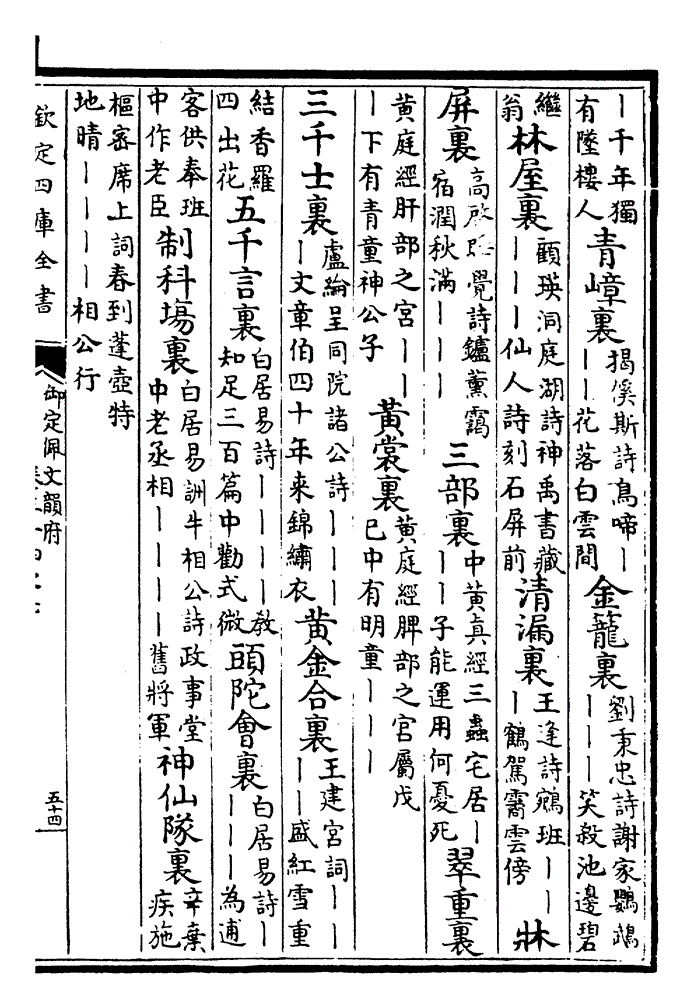 丨千年獨有墜樓人 青嶂裏 揭傒斯詩鳥啼丨丨丨花落白雲間 金籠裏 劉秉忠詩謝家鸚鵡丨丨丨笑殺池邊碧
繼翁 林屋裏 顧瑛洞庭湖詩神禹書藏丨丨丨仙人詩刻石屏前 清漏裏 王逢詩鵷班丨丨丨鶴駕靄雲傍 牀
屏裏 高啟覺詩鑪薰靄宿潤秋滿丨丨丨 三部裏 中黃真經三蟲宅居丨丨丨子能運用何憂死 翠重裏
黃庭經肝部之宮丨丨丨下有青童神公子 黃裳裏 黃庭經脾部之宮屬戊已中有明童丨丨丨
三千士裏 盧綸呈同院諸公詩丨丨丨丨文章伯四十年来錦繡衣 黃金合裏 王建宮詞丨丨丨丨盛紅雪重
結香羅四出花 五千言裏 白居易詩丨丨丨丨教知足三百篇中勸式微 頭陀會裏 白居易詩丨丨丨丨為逋
客供奉班中作老臣 制科場裏 白居易詶牛相公詩政事堂中老丞相丨丨丨丨舊將軍 神仙隊裏 辛棄疾施
樞密席上詞春到蓬壺特地晴丨丨丨丨相公行
欽定四庫全書
御定佩文韻府
五十四